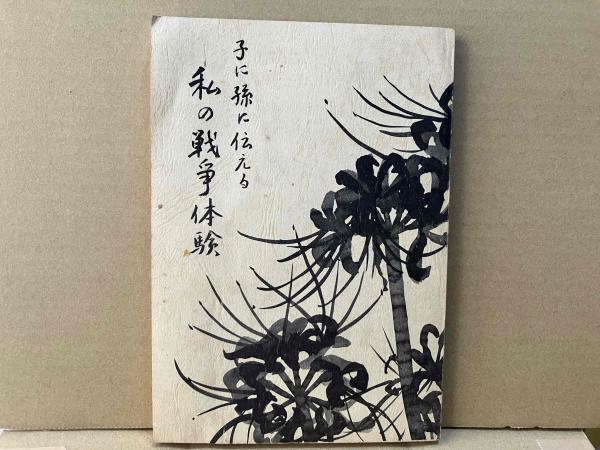 子に孫に伝える
私の戦争体験